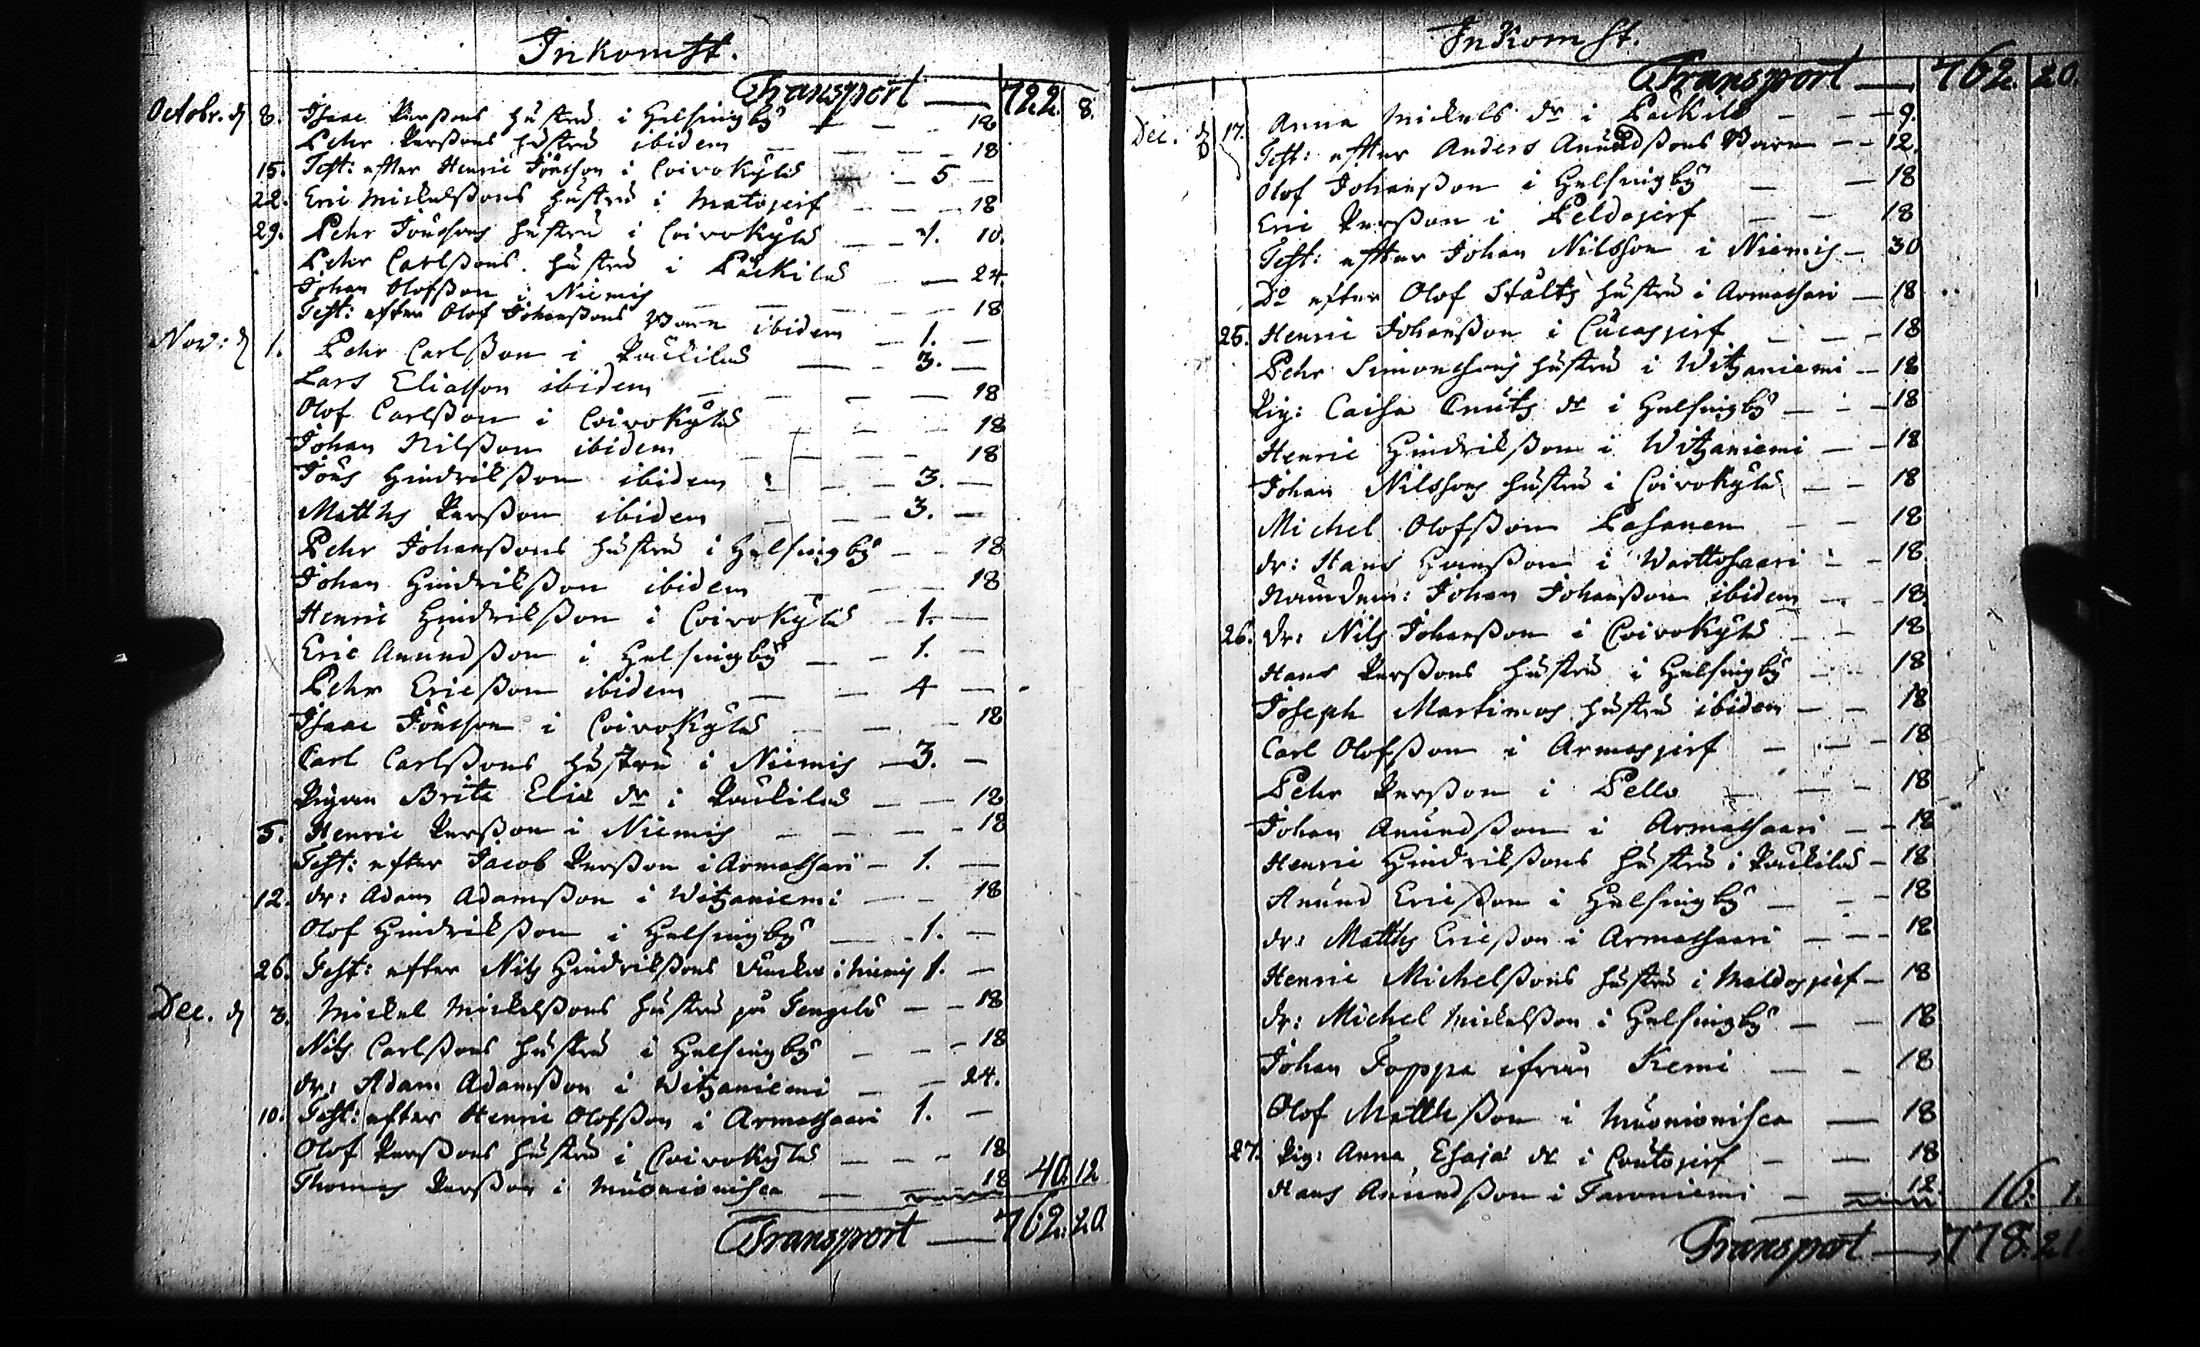 Inkomst.
Transport — 722. 8.
Octobr. d 8. Isaac Persons hustru i Helsingby — 18
Pehr Perssons hustru ibidem — 18
15. Test: efter Henric Jönsson i Coivokylä — 5 —
22. Eric Mickelssons hustru i Matojerf — 18
29. Pehr Jönssons hustru i Coivokylä — 1. 10.
Pehr Carlssons hustru i Päckilä — 24.
Johan Olofsson i Niemis — 18
Test: efter Olof Johanssons Barn ibidem — 1. —
Nov: d 1. Pehr Carlsson i Päckilä — 3. —
Lars Eliasson ibidem — 18
Olof Carlsson i Coivokylä — 18
Johan Nilsson ibidem — 18
Jöns Hindriksson ibidem — 3. —
Matths Persson ibidem — 3. —
Pehr Johanssons hustru i Helsingby — 18
Johan Hindriksson ibidem — 18
Henric Hindriksson i Coivokylä — 1. —
Eric Anundsson i Helsingby — 1. —
Pehr Ericsson ibidem — 4 —
Isaac Jönsson i Coivokylä — 18
Carl Carlssons hustru i Niemis — 3. —
Pigan Brita Eliæ dr i Päckilä — 12
5. Henric Persson i Niemis — 18
Test: efter Jacob Persson i Armassari — 1. —
12. dr: Adam Adamsson i Witzaniemi — 18
Olof Hindriksson i Helsingby — 1. —
26. Test: efter Nils Hindrikssons Enka i Niemis 1. —
Dec. d 3. Mickel Mickelssons hustru på Tengelö — 18
Nils Carlssons hustru i Helsingby — 18
dr: Adam Adamsson i Witzaniemi — 24.
10. Test: efter Henric Olofsson i Armassaari 1. —
Olof Perssons hustru i Coivokylä — 18
Thomas Persson i Muonionisca — 18 40. 12
Transport — 762. 20.
Inkomst.
Transport — 762. 20.
Dec. d 17. Anna Mickels dr i Päckilä — 9.
Test: efter Anders Anundssons Barn — 12.
Olof Johansson i Helsingby — 18
Eric Persson i Peldojerf — 18
Test: efter Johan Nilsson i Niemis — 30
Do efter Olof Stålts hustru i Armassari — 18
25. Henric Johansson i Cucasjerf — 18
Pehr Simonssons hustru i Witzaniemi — 18
Pig: Caisa Cnuts dr i Helsingby — 18
Henric Hindriksson i Witzaniemi — 18
Johan Nilssons hustru i Coivokylä — 18
Michel Olofsson Pasanen — 18
dr: Hans Hansson i Warttosaari — 18
Johan Johansson ibidem — 18.
26. dr: Nils Johansson i Coivokylä — 18
Hans Perssons hustru i Helsingby — 18
Joseph Martimos hustru ibidem — 18
Carl Olofsson i Armasjerf — 18
Pehr Persson i Pello — 18
Johan Anundsson i Armassaari — 18
Henric Hindrikssons hustru i Päckilä — 18
Anund Ericsson i Helsingby — 18
dr: Matths Ericsson i Armassaari — 18
Henric Michelssons hustru i Meldosjerf — 18
dr: Michel Mickelsson i Helsingby — 18
Johan Foppa ifrån Kemi — 18
Olof Matthsson i Muonionisca — 18
27. Pig: Anna Esajæ dr i Coutojerf — 18
Hans Anundsson i Taroniemi — 12. 16. 1.
Transport — 778. 21.